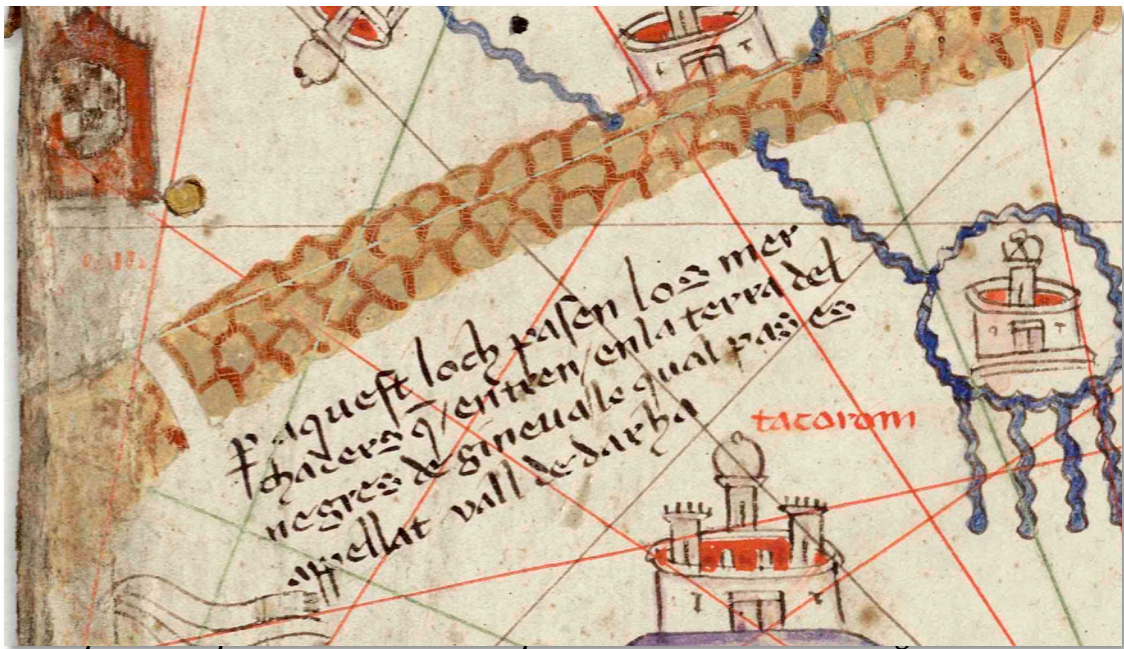 Ꝑ aqueſt loch paſen los mer
chaders q̄ entren en la terra del
negres de gineua lo qual pas es
appellat vall de darha
tacorom